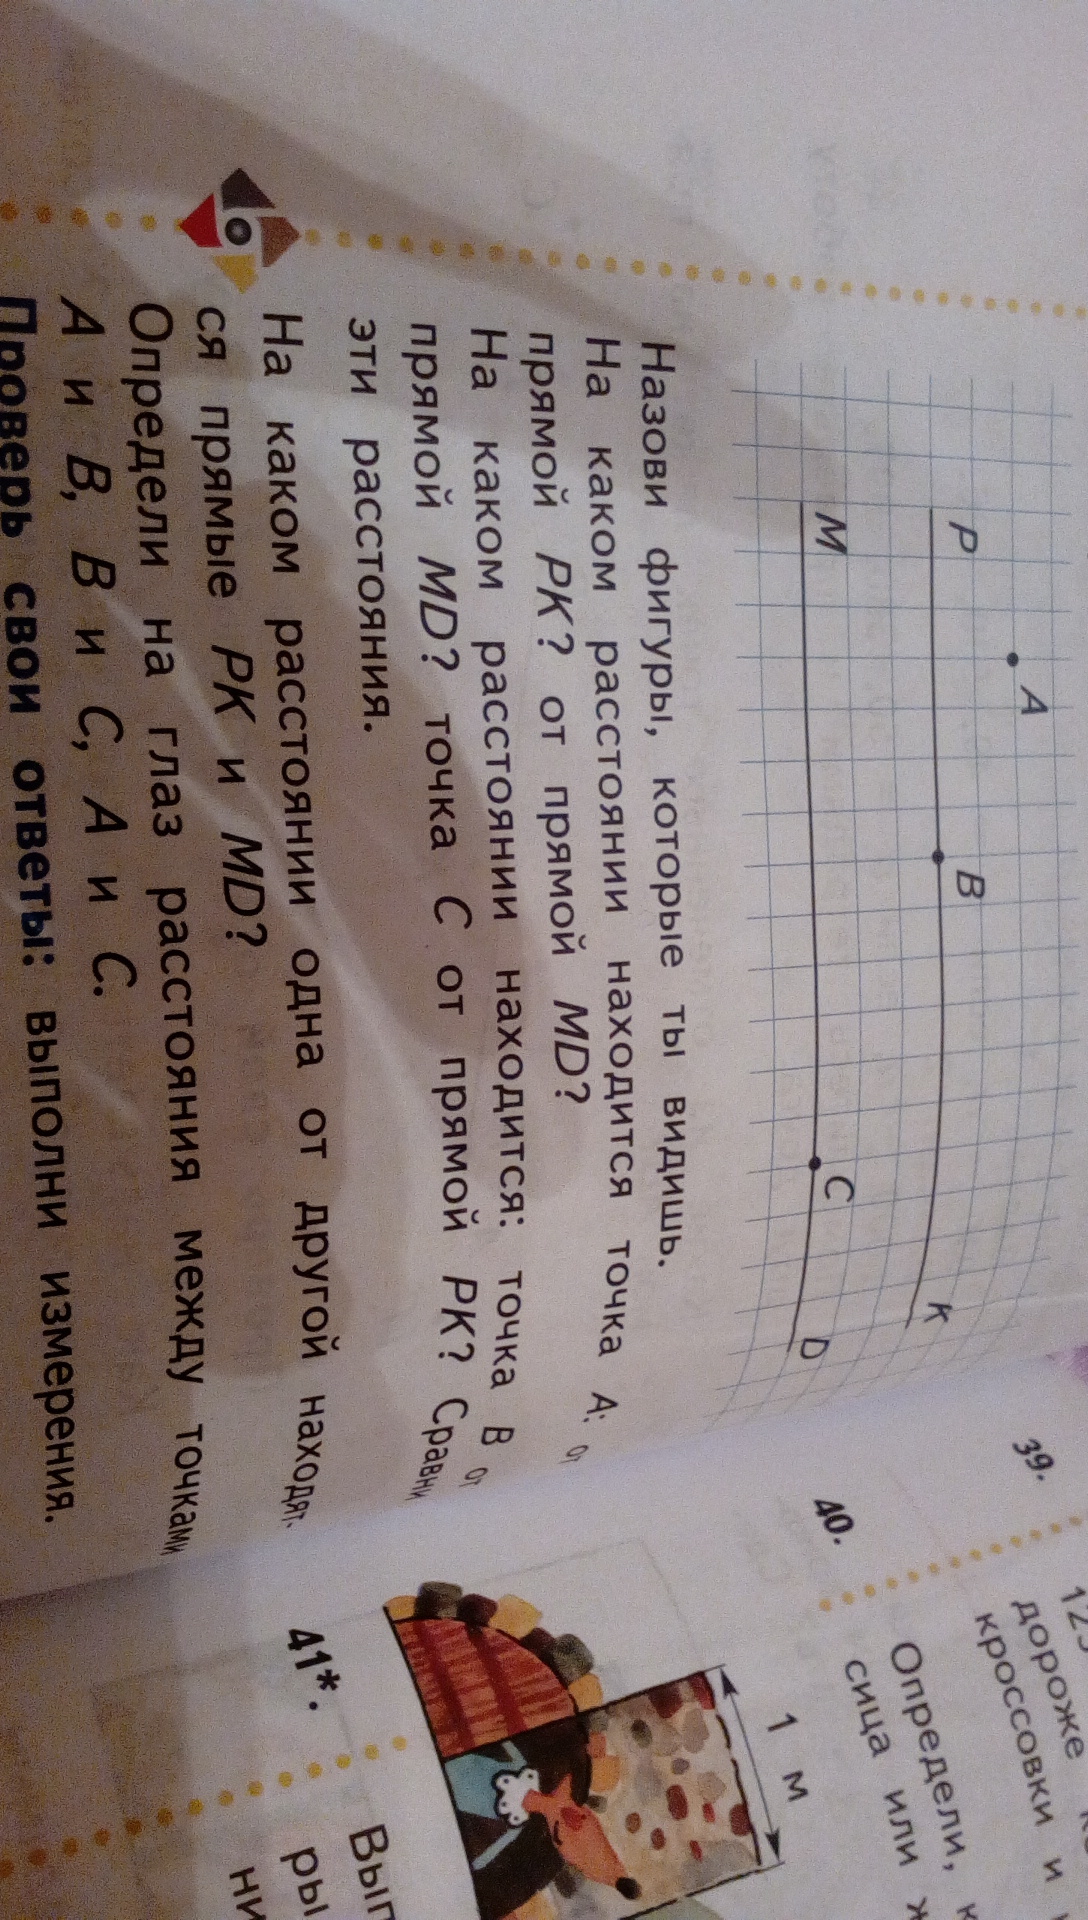 A
P
B
K
M
C
D
Назови фигуры, которые ты видишь.
На каком расстоянии находится точка A: от
прямой PK? от прямой MD?
На каком расстоянии находится: точка B от
прямой MD? точка C от прямой PK? Сравни
эти расстояния.
На каком расстоянии одна от другой находят-
ся прямые PK и MD?
Определи на глаз расстояния между точками
A и B, B и C, A и C.
Проверь свои ответы: выполни измерения.
39.
дороже
кроссовки и
40.
Определи,
сица или
1 м
41*.